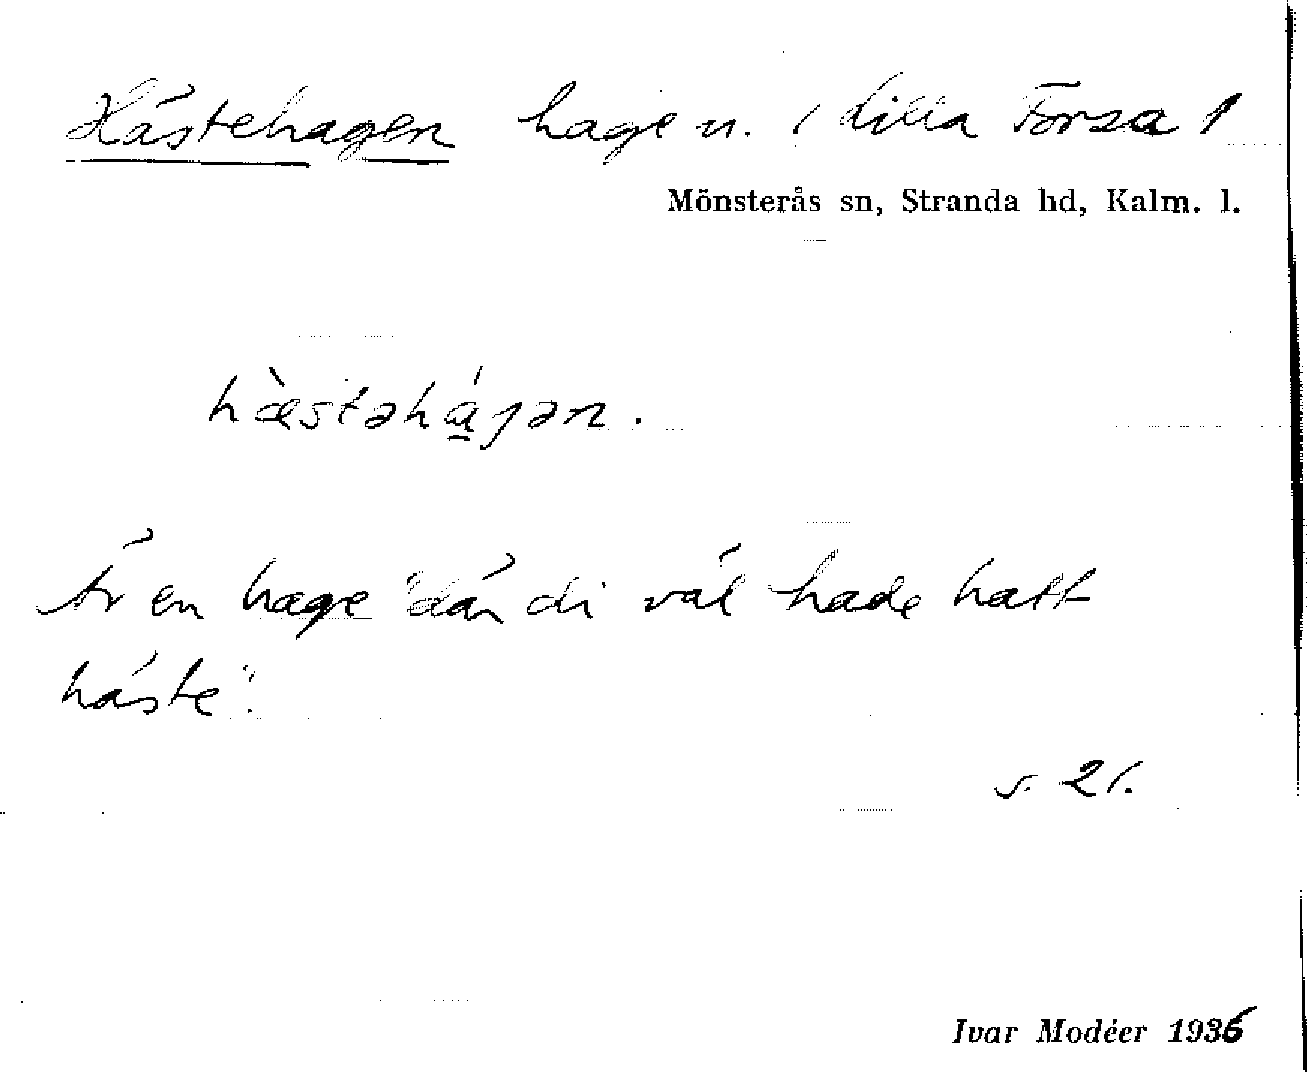 Hästehagen hage n. i Lilla Forsa 1
Mönsterås sn, Stranda hd, Kalm. l.
hæ̀stəhá̱gən.
Är en hage "där di väl hade haft
häste".
s. 21.
Ivar Modéer 1936